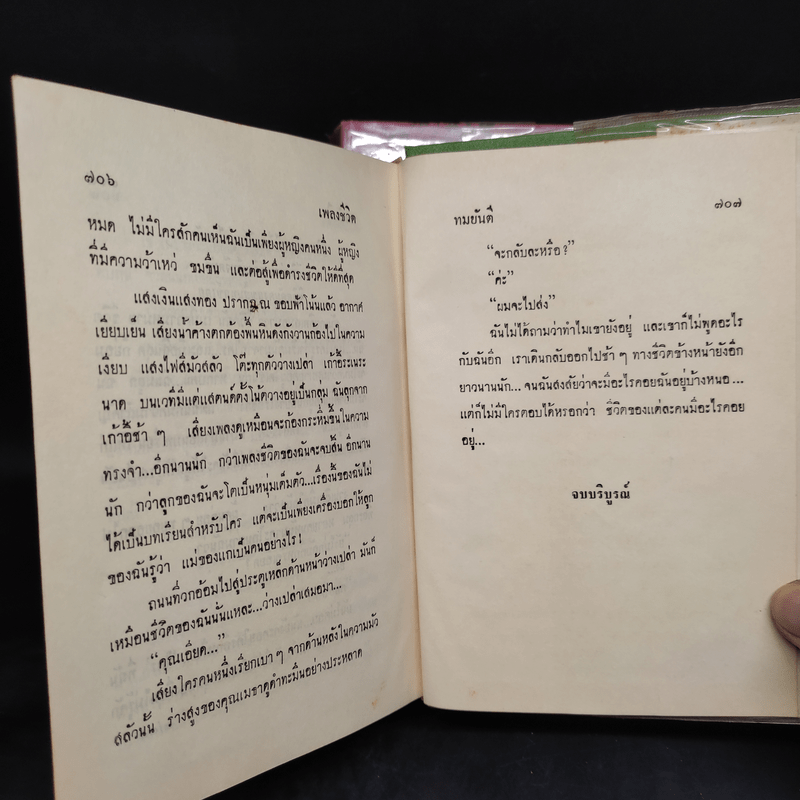 ๗๐๖
เพลงชีวิต
หมด ไม่มีใครสักคนเห็นฉันเป็นเพียงผู้หญิงคนหนึ่ง ผู้หญิง
ที่มีความว้าเหว่ ขมขื่น และต่อสู้เพื่อดำรงชีวิตให้ดีที่สุด
แสงเงินแสงทอง ปรากฏณ ขอบฟ้าโน้นแล้ว อากาศ
เยียบเย็น เสียงน้ำค้างตกต้องพื้นหินดังกังวานก้องไปในความ
เงียบ แสงไฟสีมัวสลัว โต๊ะทุกตัวว่างเปล่า เก้าอี้ระเนระ
นาด บนเวทีมีแต่แสตนด์ตั้งโน้ตวางอยู่เป็นกลุ่ม ฉันลุกจาก
เก้าอี้ช้า ๆ เสียงเพลงดูเหมือนจะก้องกระหึ่มขึ้นในความ
ทรงจำ...อีกนานนัก กว่าเพลงชีวิตของฉันจะจบสิ้น อีกนาน
นัก กว่าลูกของฉันจะโตเป็นหนุ่มเต็มตัว...เรื่องนี้ของฉันไม่
ได้เป็นบทเรียนสำหรับใคร แต่จะเป็นเพียงเครื่องบอกให้ลูก
ของฉันรู้ว่า แม่ของแกเป็นคนอย่างไร!
ถนนที่วกอ้อมไปสู่ประตูเหล็กด้านหน้าว่างเปล่า มันก็
เหมือนชีวิตของฉันนั่นแหละ...ว่างเปล่าเสมอมา...
“คุณเอียด...”
เสียงใครคนหนึ่งเรียกเบา ๆ จากด้านหลังในความมัว
สลัวนั้น ร่างสูงของคุณเมธาดูดำทะมึนอย่างประหลาด
ทมยันตี
๗๐๗
“จะกลับละหรือ?”
“ค่ะ”
“ผมจะไปส่ง”
ฉันไม่ได้ถามว่าทำไมเขายังอยู่ และเขาก็ไม่พูดอะไร
กับฉันอีก เราเดินกลับออกไปช้า ๆ ทางชีวิตข้างหน้ายังอีก
ยาวนานนัก... จนฉันสงสัยว่าจะมีอะไรคอยฉันอยู่บ้างหนอ...
แต่ก็ไม่มีใครตอบได้หรอกว่า ชีวิตของแต่ละคนมีอะไรคอย
อยู่...
จบบริบูรณ์